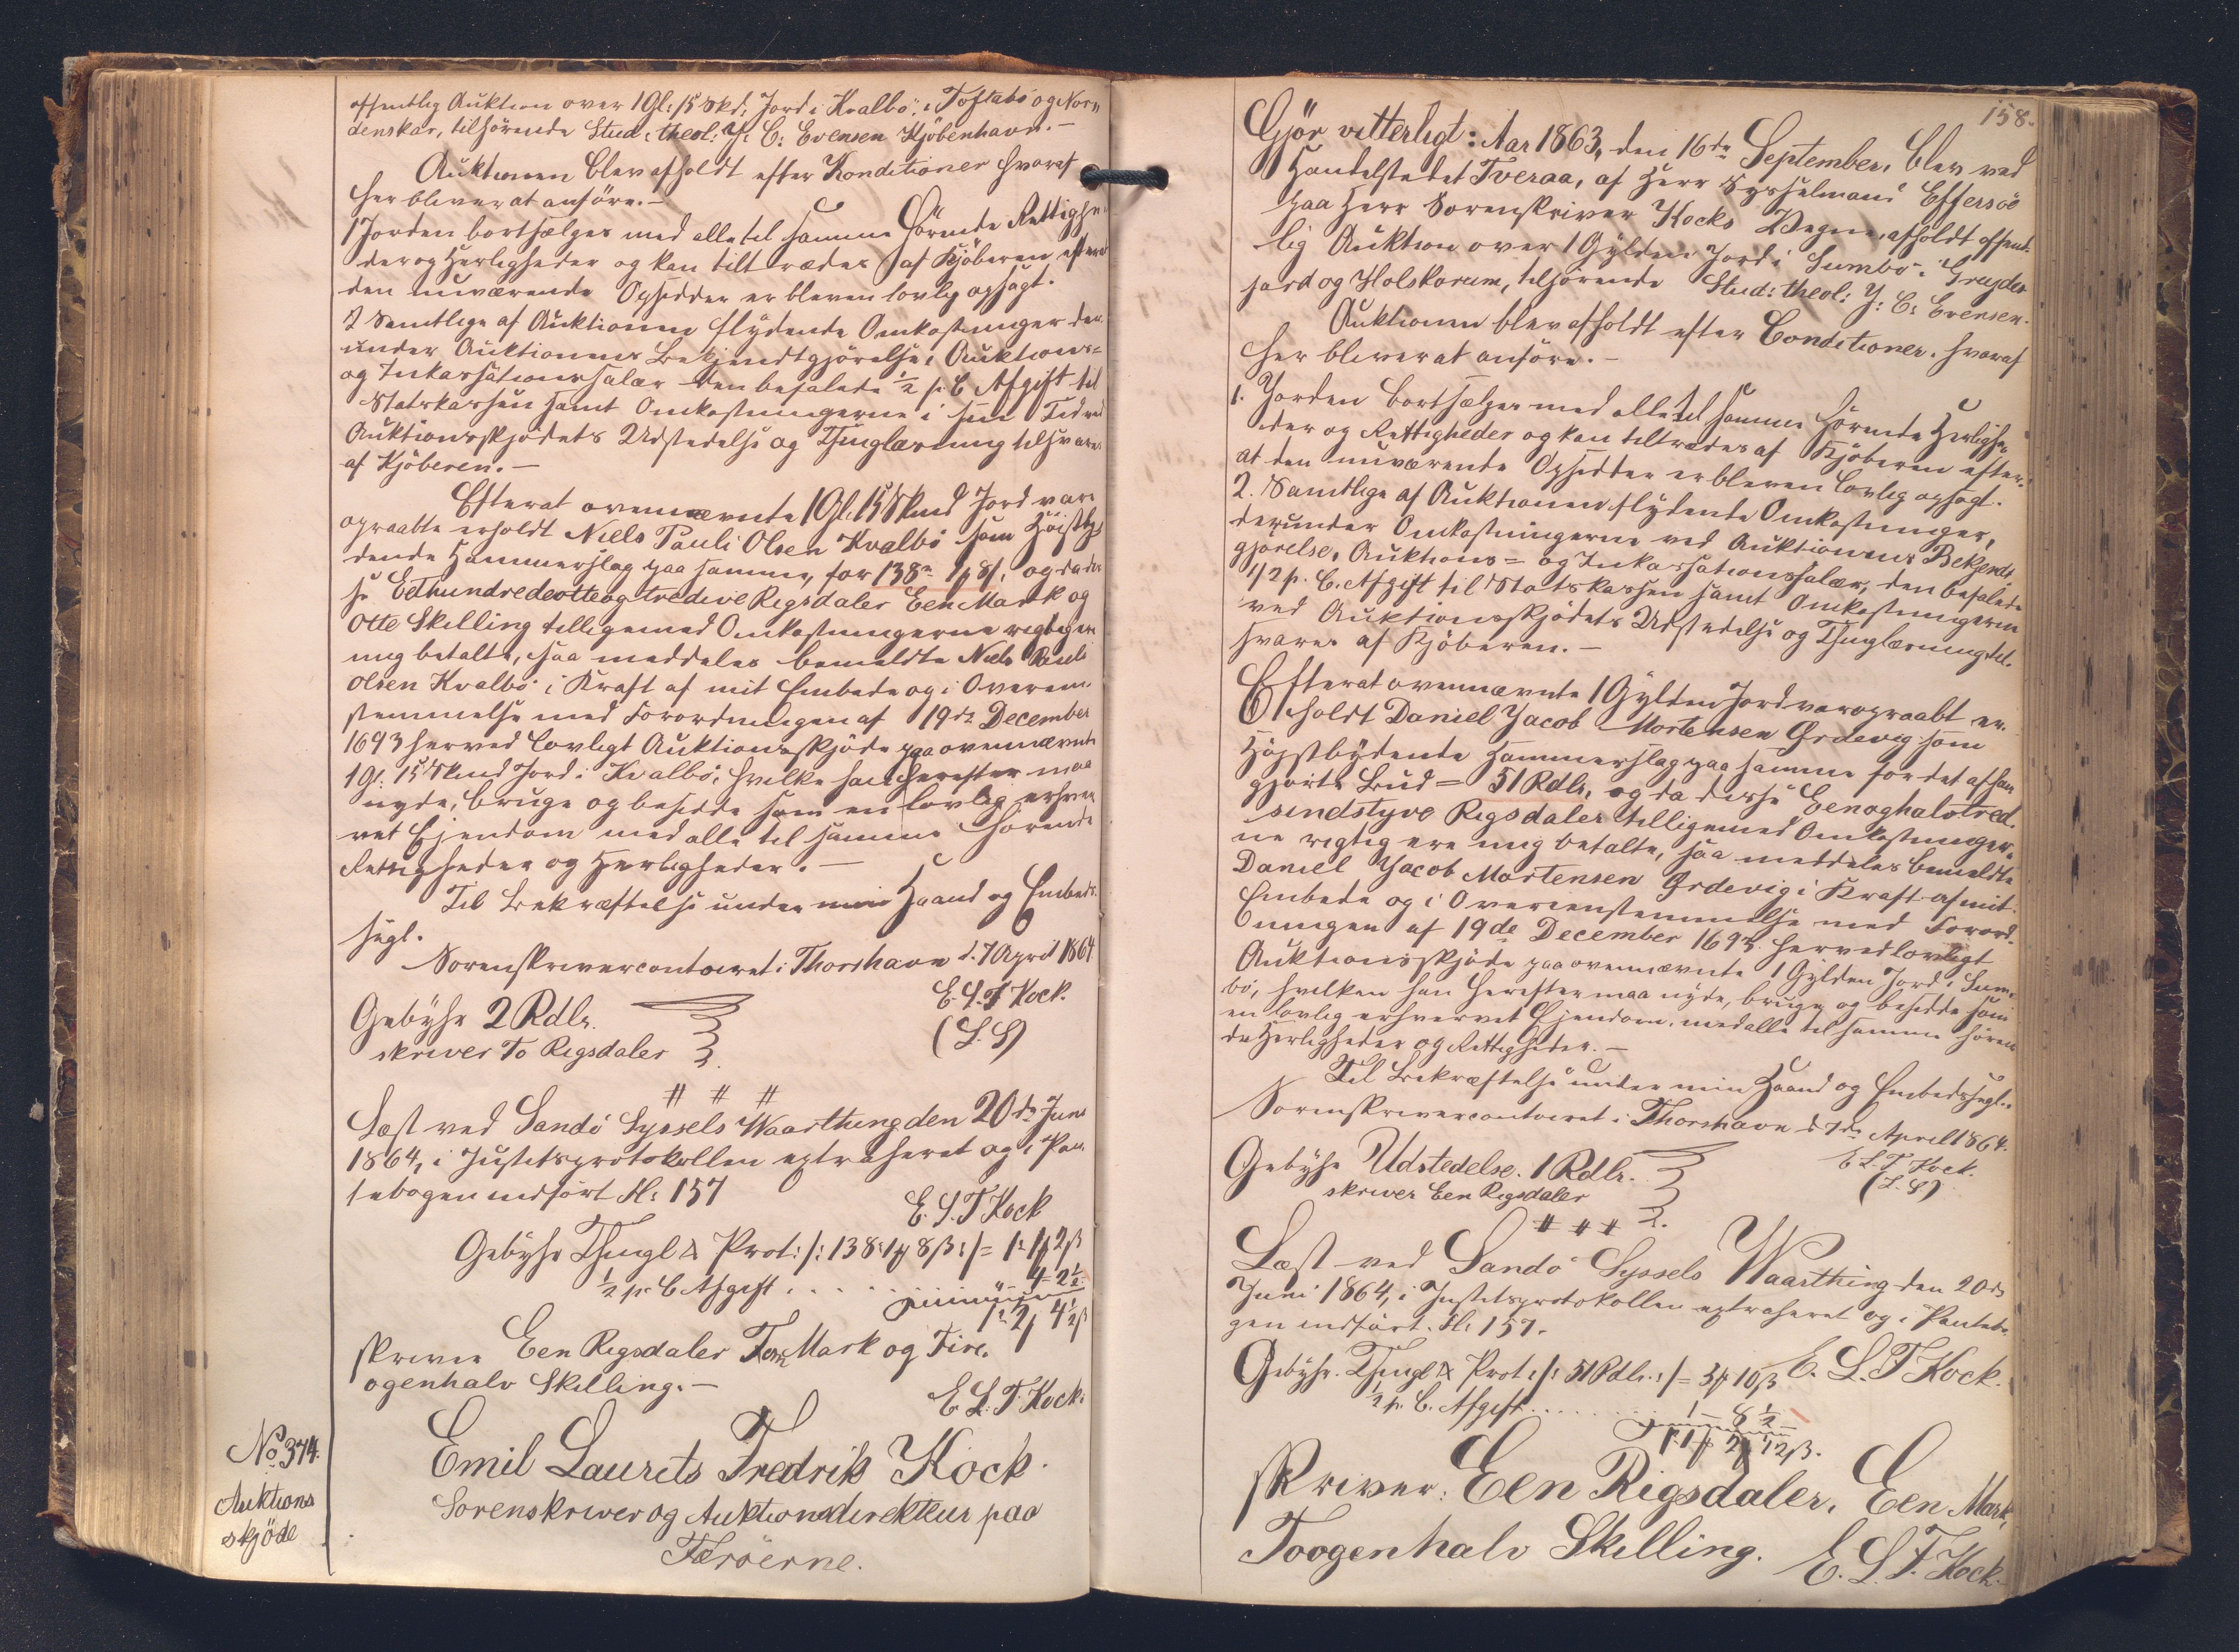 offentlig Auktion over 1 Gl: 15 Skd: Jord i Kvalbö, i Toftabö og Nor-
denskar, tilhörende Stud: theol: Y: C: Evensen Kjöbenhavn.-
Auktionen blev afholdt efter Konditioner hvoraf
her bliver at anföre.-
1 Jorden bortsælges med alle til samme hörende Rettighe-
der og Herligheder og kan tiltrædes af Kjöberen efterat
den nuværende Opsidder er bleven lovlig opsagt.
2 Samtlige af Auktionen flydende Omkostninger der-
under Auktionens Bekjendtgjörelse, Auktions-
og Inkassationssalær den befalede ½ p. C Afgift til
Statskassen samt Omkostningerne i sin Tid ved
Auktionsskjödets Udstedelse og Thinglæsning tilsvares
af Kjöberen.-
Efterat ovennævnte 1 Gl. 15 Skind Jord var
opraabte erholdt Niels Pauli Olsen Kvalbö som Höistby-
dende Hammerslag paa samme, for 138rd 1 8, og da dis-
se Eethundredeotteogtredive Rigsdaler Een Mark og
Otte Skilling tilligemed Omkostningerne rigtig ere
mig betalte, saa meddeles bemeldte Niels Pauli
Olsen Kvalbö i Kraft af mit Embede og i Overeen-
stemmelse med Forordningen af 19de December
1693 herved lovligt Auktionsskjöde paa ovennævnte
1 Gl. 15 Skind Jord i Kvalbö, hvilke han herefter maa
nyde, bruge og besidde som en lovlig erhver-
vet Ejendom med alle til samme hörende
Rettigheder og Herligheder.-
Til Bekræftelse under min Haand og Embeds-
segl.
Sorenskrivercontoiret i Thorshavn d. 7 April 1864
E. L. T Kock.
Gebyhr 2 Rdlr.
(L. S)
skriver To Rigsdaler
# # #
Læst ved Sandö Syssels Vaarthing den 20de Juni
1864, i Justitsprotokollen extraheret og i Pan-
tebogen indfört Fl: 157
E. L. T Kock
Gebyhr Thingl & Prot: /: 138 1 8ß :/ = 1 1 2ß
½ p. C Afgift . . . . 4 - 2½
1 2 4½ß
skriver Een Rigsdaler To Mark og Fire-
ogenhalv Skilling.-
E. L. T. Kock.
No 374.
Auktions
skjöde
Emil Laurits Fredrik Kock
Sorenskriver og Auktionsdirekteur paa
Færöerne.
158.
Gjör vitterligt: Aar 1863, den 16de September, blev ved
Handelstedet Tveraa, af Herr Sysselmand Effersöe
paa Herr Sorenskriver Kocks Vegne, afholdt offent-
lig Auktion over 1 Gylden Jord i Sumbö, i Gruyder-
jard og Holskorum, tilhörende Stud: theol: Y: C: Evensen.
Auktionen blev afholdt efter Conditioner, hvoraf
her bliver at anföre.-
1. Jorden bortsælges med alle til samme hörende Herlighe-
der og Rettigheder og kan tiltrædes af Kjöberen efter-
at den nuværende Opsidder er bleven lovlig opsagt.
2. Samtlige af Auktionen flydende Omkostninger,
derunder Omkostningerne ved Auktionens Bekjendt-
gjörelse, Auktions- og Inkassationssalær, den befalede
1/2 p. C. Afgift til Statskassen samt Omkostningerne
ved Auktionsskjödets Udstedelse og Thinglæsning til-
svares af Kjöberen.-
Efterat ovennævnte 1 Gylden Jord var opraabt er-
holdt Daniel Jacob Mortensen Ördevig som
Höjstbydende Hammerslag paa samme for det af ham
gjorte Bud = 51 Rdlr, og da disse Eenoghalvtred-
sindstyve Rigsdaler tilligemed Omkostninger-
ne rigtig ere mig betalte, saa meddeles bemeldte
Daniel Jacob Mortensen Ördevig i Kraft af mit
Embede og i Overeenstemmelse med Forord-
ningen af 19de December 1693 herved lovligt
Auktionsskjöde paa ovennævnte 1 Gylden Jord i Sum-
bö, hvilken han herefter maa nyde, bruge og besidde som
en lovlig erhvervet Ejendom, med alle til samme hören-
de Herligheder og Rettigheder.-
Til Bekræftelse under min Haand og Embedssegl..
Sorenskrivercontoiret i Thorshavn d 7de April 1864.
E L. T. Kock.
Gebyhr Udstedelse. 1 Rdlr.
(L. S)
skriver Een Rigsdaler
# # #
Læst ved Sandö Syssels Vaarthing den 20de
Juni 1864, i Justitsprotokollen extraheret og i Pantebo-
gen indfört. Fl: 157.
Gebyhr. Thingl & Prot: /: 51 Rdlr. :/ = 3 10ß
E. L. T Kock.
½ p. C. Afgift . . . . 1 - 8½
1 1 2 1/2ß.
skriver: Een Rigsdaler, Een Mark,
Toogenhalv Skilling.
E. L. T. Kock.